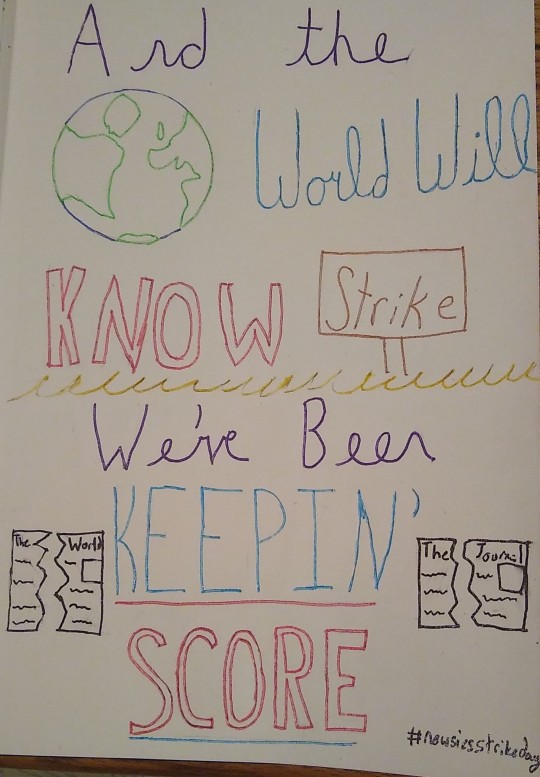 And the
World Will
KNOW
Strike
We've Been
KEEPIN'
The World
The Journal
SCORE
#newsiesstrikeday